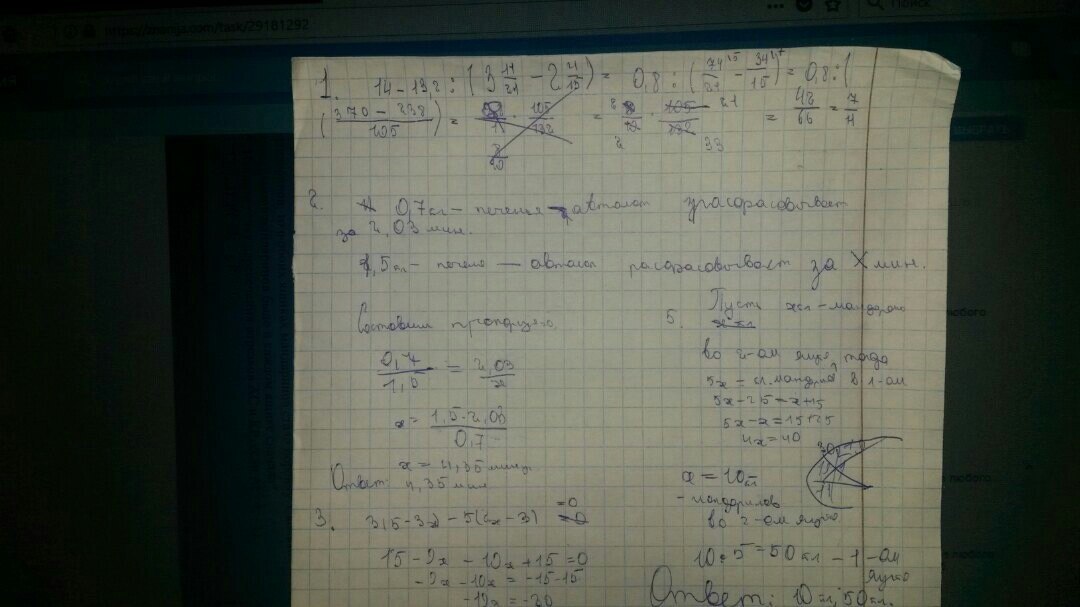 https://znanija.com/task/29181292
Поиск
1. 14 - 13,2 : (3 11/21 - 2 4/15) = 0,8 : (74/21 - 34/15) = 0,8 : (
(370 - 238 / 105) = = 8/10 · 105/132 = 42/66 = 7/11
2. 0,7 кг - печенья - автомат расфасовывает
за 2,03 мин.
1,5 кг - печенье — автомат расфасовывает за X мин.
Составим пропорцию
0,7/1,5 = 2,03/x
x = 1,5·2,03 / 0,7
x = 4,35 мин.
Ответ: 4,35 мин
3. 3(5-3x) - 5(2x-3) = 0
15 - 9x - 10x + 15 = 0
-9x - 10x = -15-15
5. Пусть x кг - мандаринов
во 2-ом ящике тогда
5x - кг. мандаринов в 1-ом
5x-25 = x+15
5x-x = 15+25
4x = 40
x = 10 кг
- мандаринов
во 2-ом ящике
10·5 = 50 кг - 1-ом
ящике
Ответ: 10 кг, 50 кг.